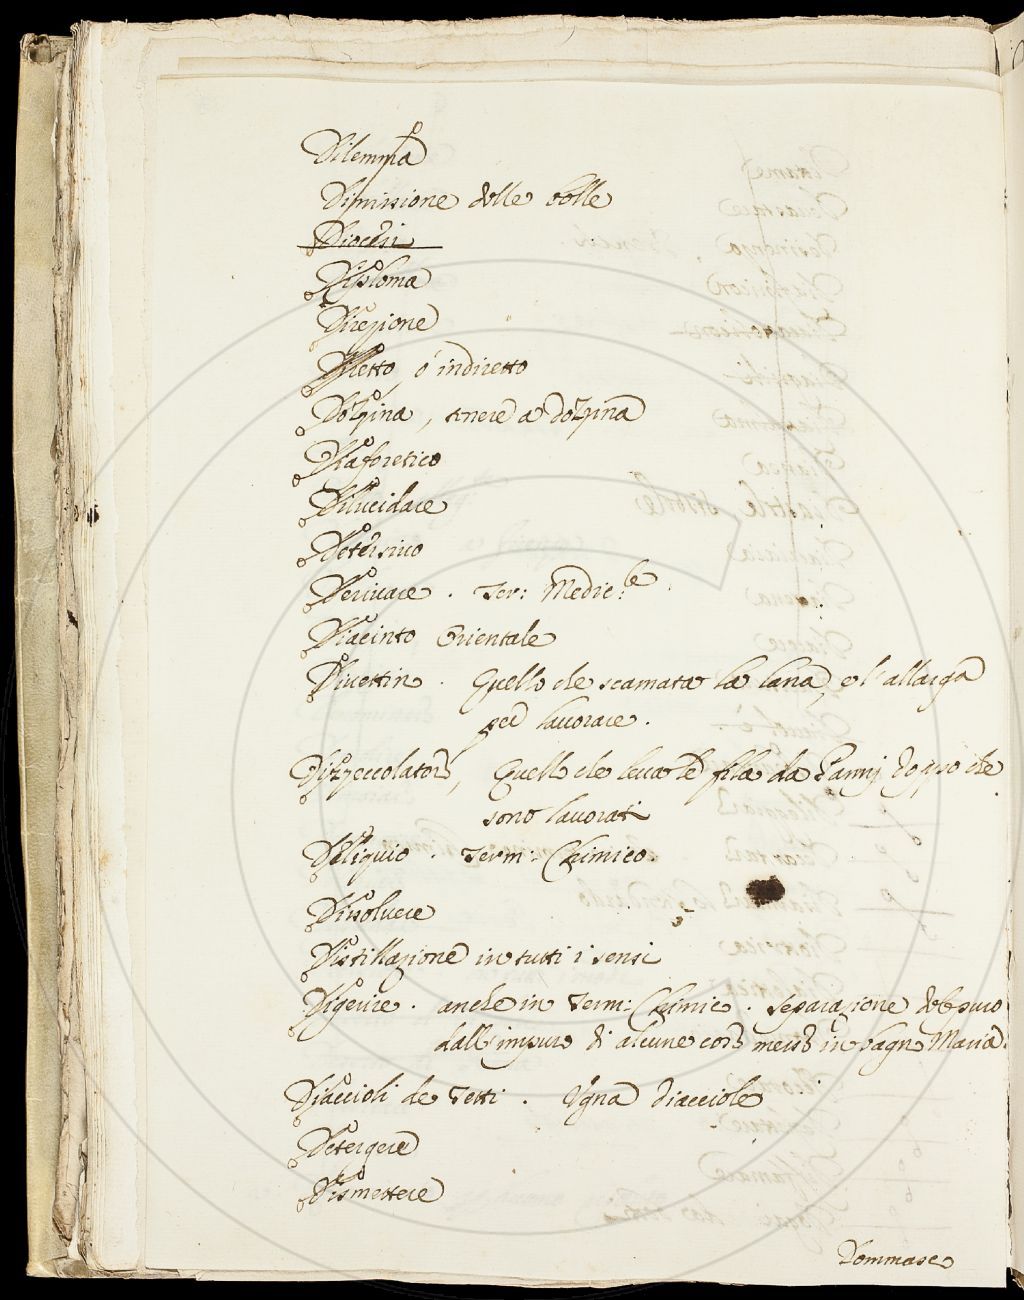 Dilemma
Dimissione delle bolle
Diocesi
Diploma
Direzione
Diretto, ó indiretto
Dozzina, tnere a dozzina
Diaforetico
Dilucidare
Detersivo
Derivare. Ter: Medic:le
Diacinto Orientale
Divettin. Quello che scamata la lana, e l'allarga
per lavorare.
Dizzeccolatore, Quello che leva le fila da Panni doppo che
sono lavorati
Deliquio. Term: Chimico.
Dissolvere
Distillazione in tutti i sensi
Digerire. anche in Term: Chimic. separazione del puro
dall'impuro di alcune cose messe in bagno Maria.
Diaccioli de Tetti. Vgna diacciole
Detergere
Dismettere
Dommasc